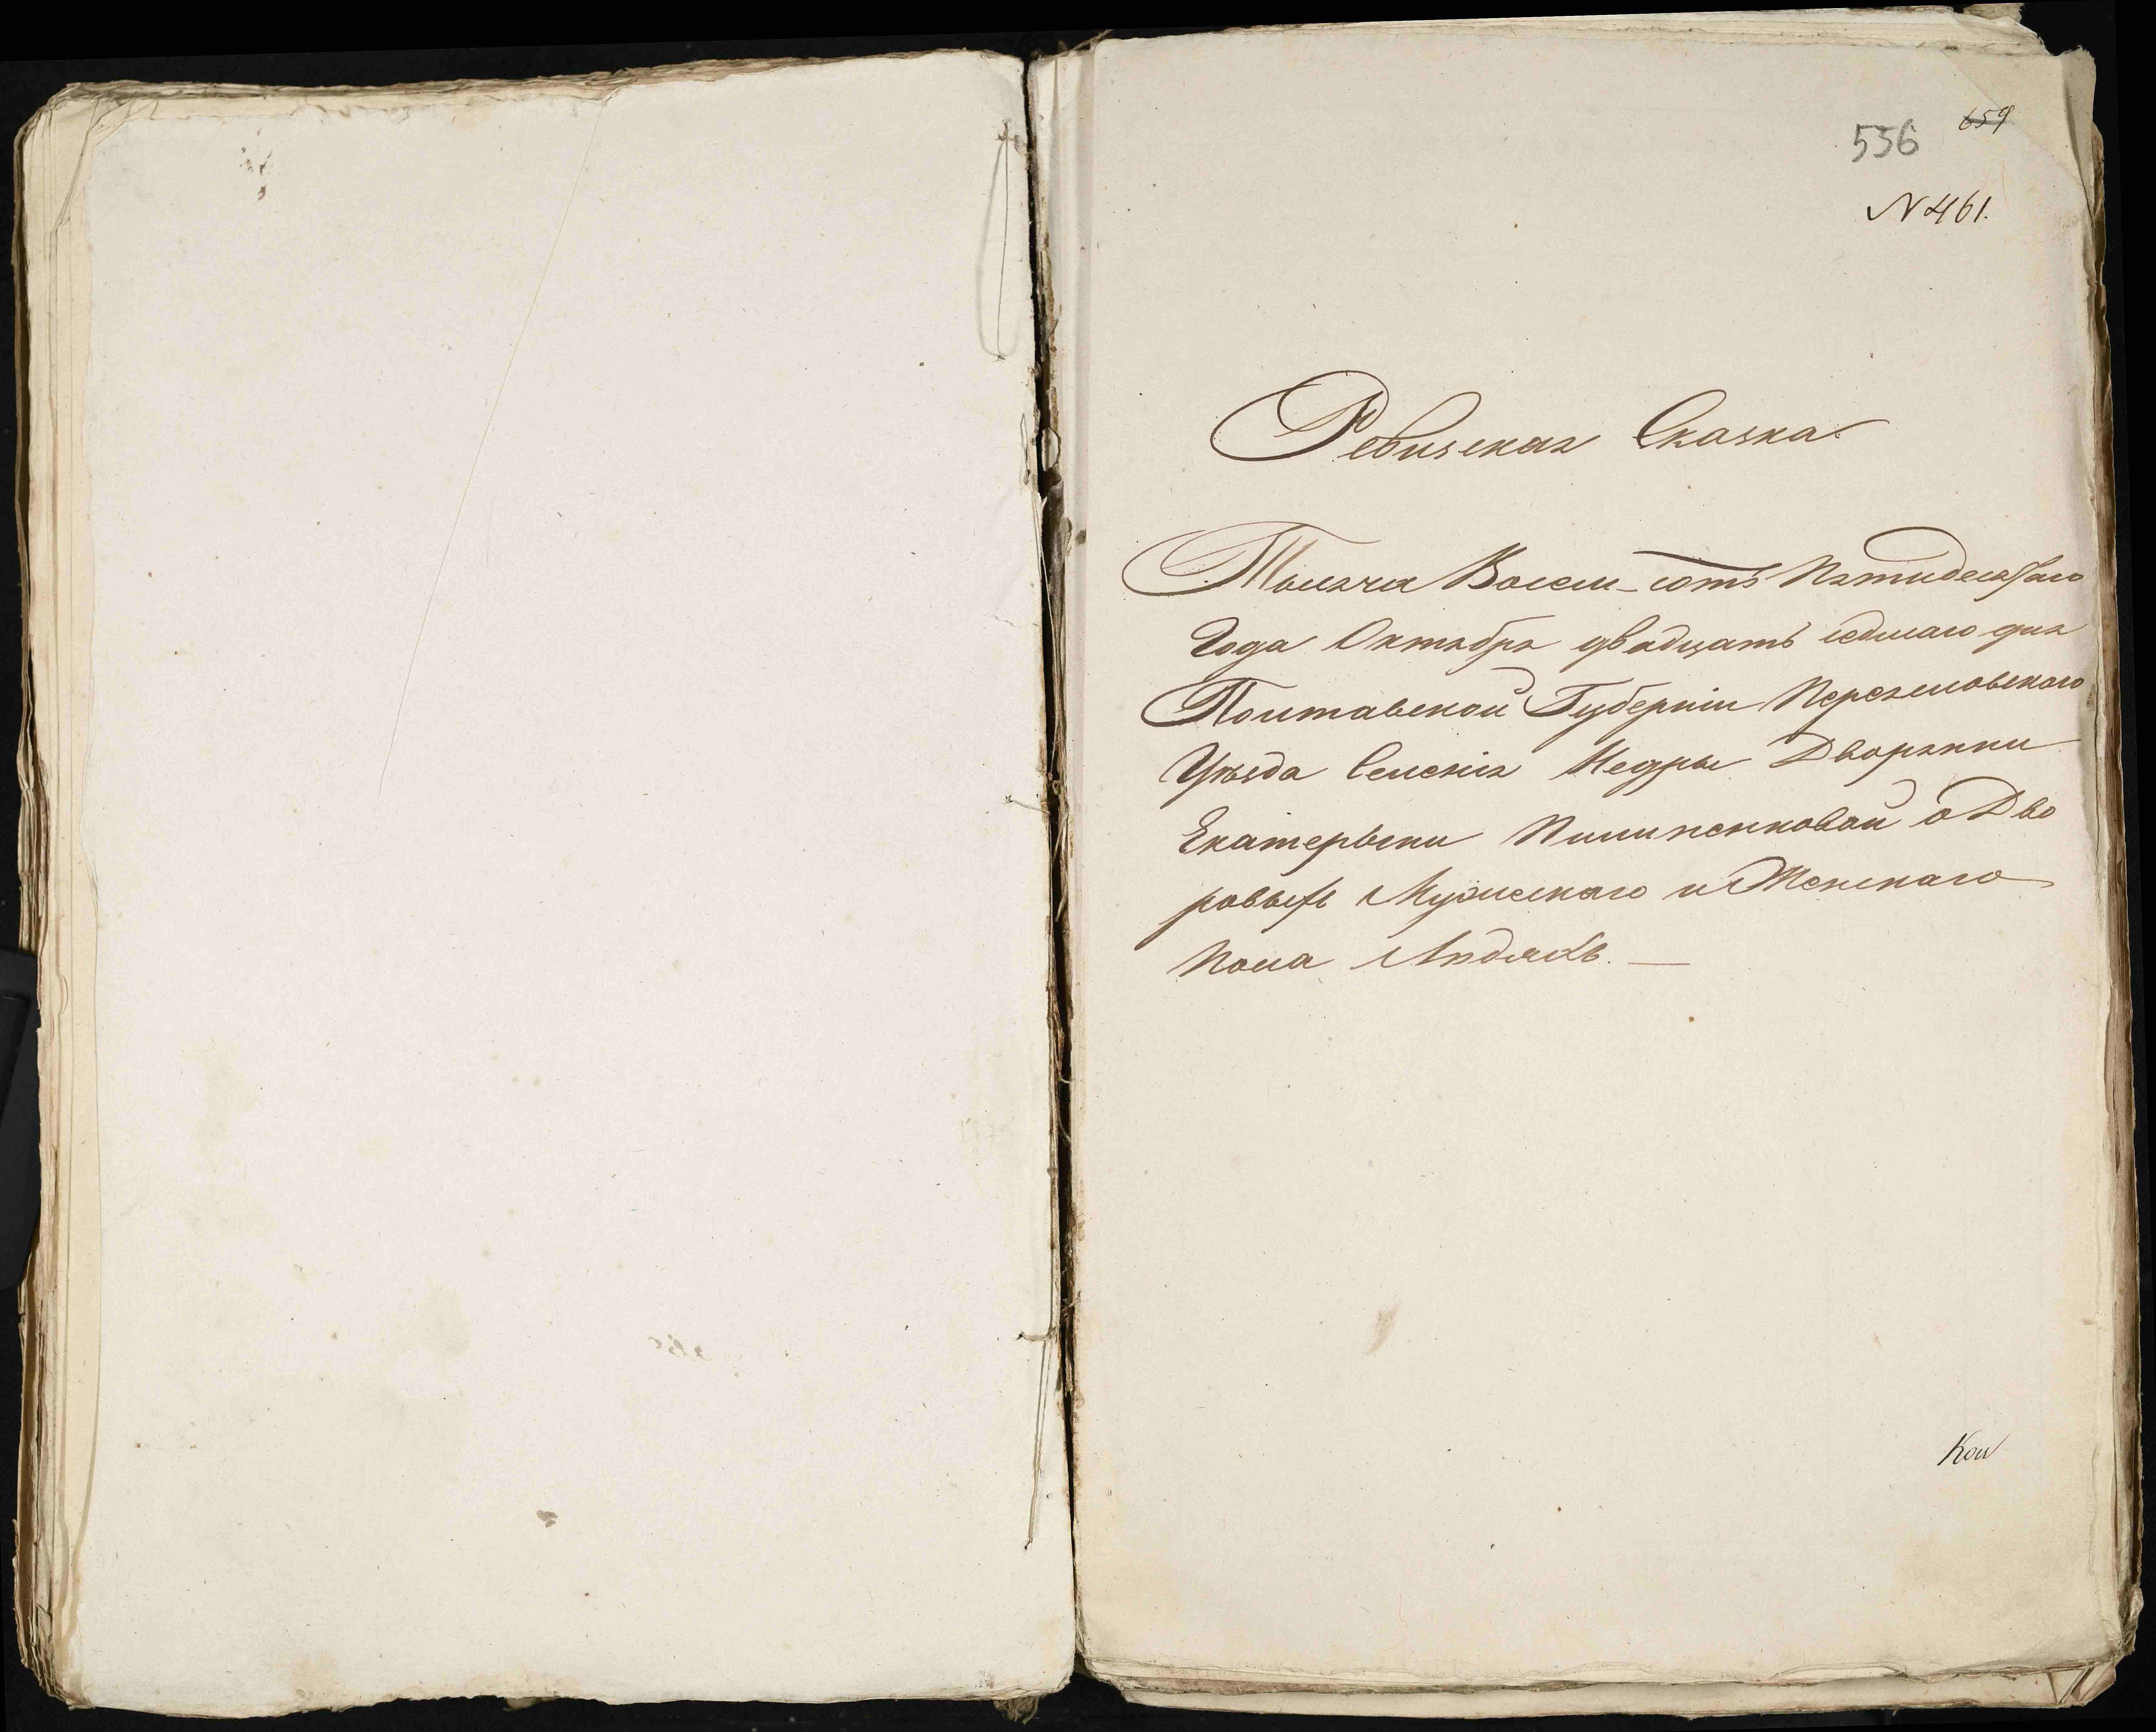 556 659
N 461.
Ревизская Сказка.
Тысяча Восем-сотъ Пятидесятаго
Года Октября двадцать седмаго дня
Полтавской Губерніи Переяславского
Уѣзда Селенія Недры Дворянки
Екатерыни Пилипенковой о Дво
ровыхъ Мужескаго и Женскаго
пола Людяхъ. —